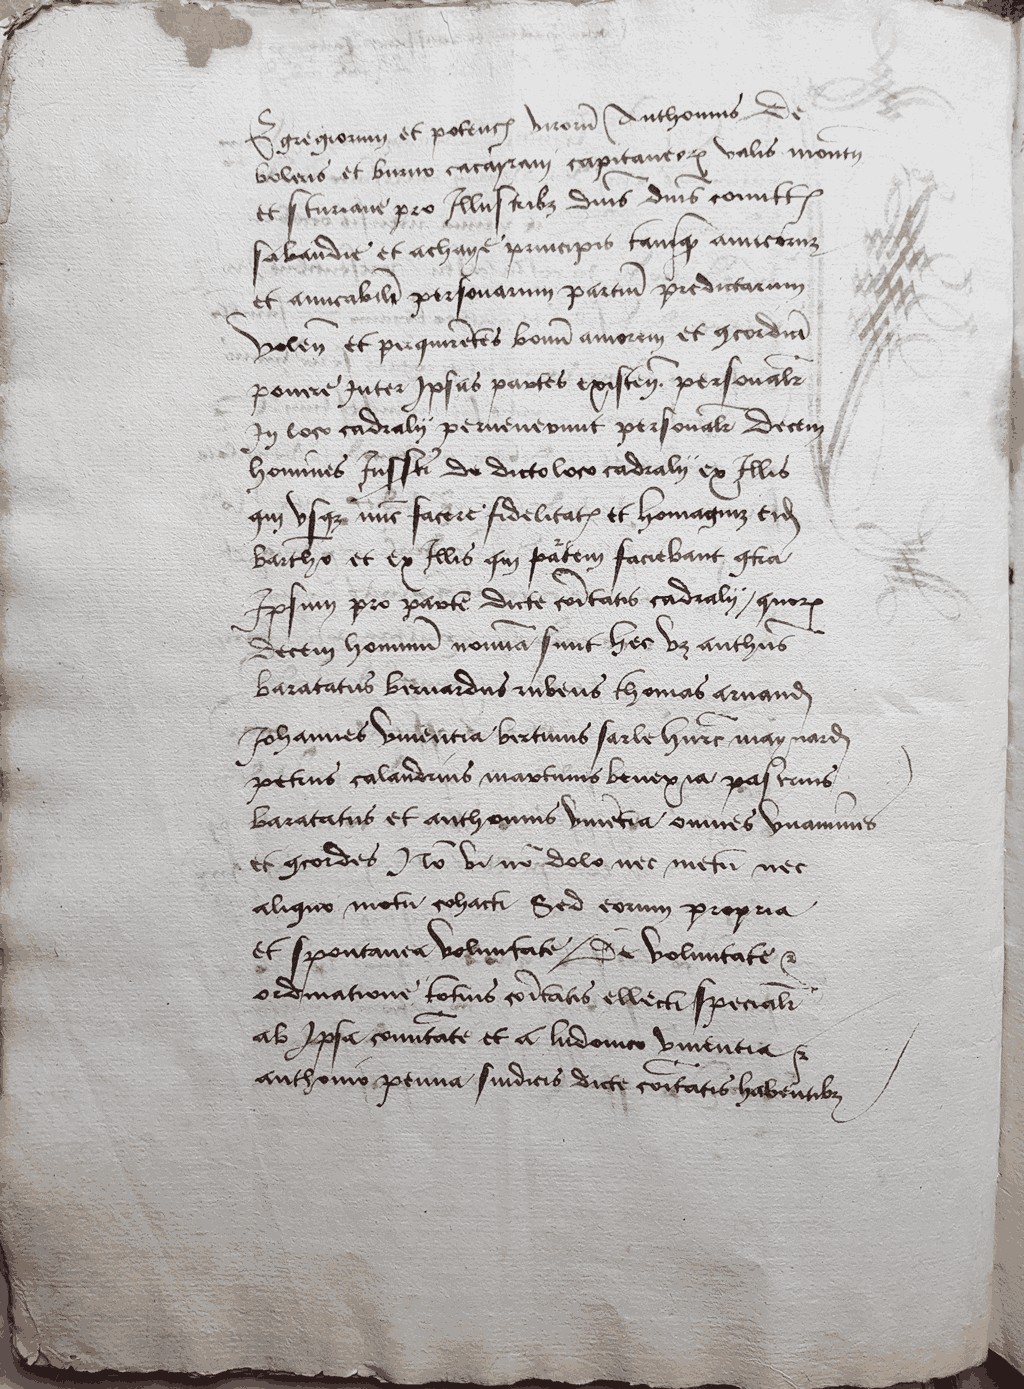 Egregiorum et potenc͂ virorū Anthonius De
bolleris et bruno cacayrani capitaneor͂ valis montii
et sturiane pro Illustribꝫ dn̄is dn̄is comitt͂
sabaudie et achaye principis tamq̄ amicorum
et amicabiliū personarum partiū predictarum
Volen̄ et perquire͂tes bonū amorem et ꝯcordiā
ponere Inter Ipsas partes existen̄. personalr̄
In loco cadralii pervenerunt personalr̄ Decem
homines de dicto loco cadralii ex Illis
qui usqꝫ nūc facere fidelitat͂ et homagium eid͂
bartho et ex Illis qui partem faciebant ꝯtra
Ipsum pro parte dicte co͂itatis cadralii / quor͂
decem hominū nomīa sunt hec vꝫ anthūs
baratatus bernardus rubeus thomas arnaud͂
Johannes vinentia bertinus sarle maynard͂
petrus calandrius martinus benexia pastrius
baratatus et anthonius vine͂tia omnes unanimes
et ꝯcordes No͂ vi no͂ dolo nec metu nec
aliquo motu cohacti Sed eorum propria
et spontanea voluntate / De voluntate ꝛ
ordinatione totius co͂itatis ellecti specialr̄
ab Ipsa comu͂tate et a ludovico vinentia ꝛ
anthonio penna sindicis dicte co͂itatis habentibꝫ